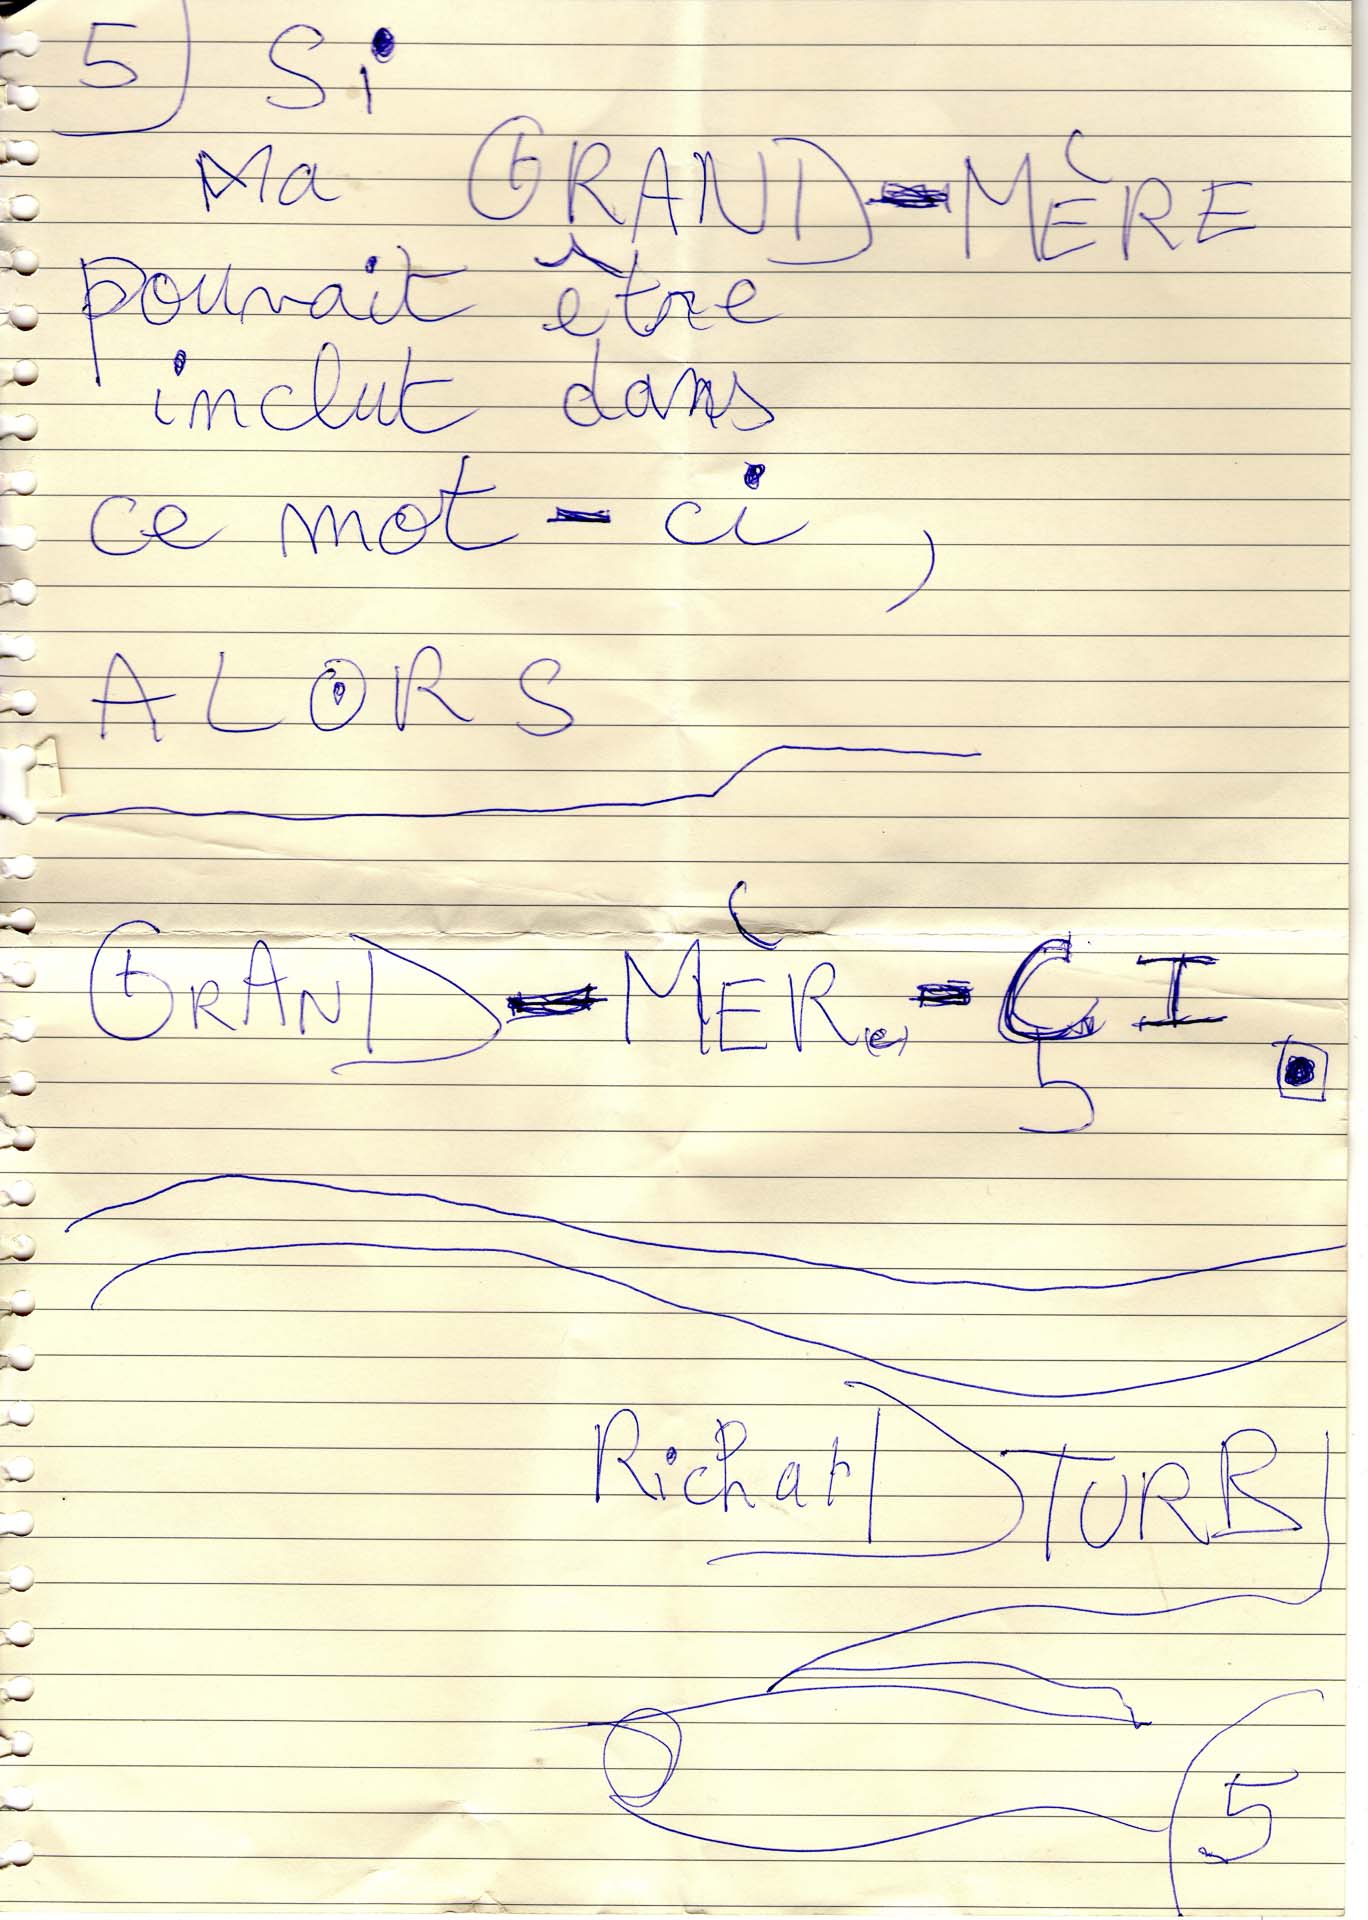 5) Si
Ma GRAND-MÈRE
pouvait être
inclut dans
ce mot-ci,
ALORS
GRAND-MÈR(e)-ÇI.
RicharD TURB
(5